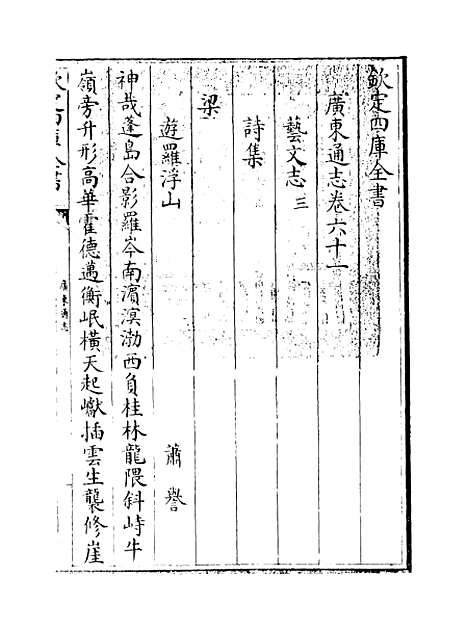 欽定四庫全書
廣東通志卷六十一
藝文志三
詩集
梁
遊羅浮山 蕭譽
神哉蓬島合影羅岑南濵溟渤西負桂林龍隈斜峙牛
嶺旁升形高華霍德邁衡岷橫天起巘插雲生襲修崖
廣東通志